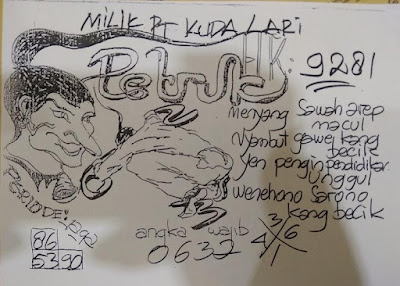 MILIK PT KUDA LARI
HK: 9281
menyang Sawah arep
macul
Nyambut gawe kang
becik
Yen pengin pendidikan
unggul
wenehono Sarono
kang becik
PERIODE:
86
5390
angka wajib
0632
3 6
4 1